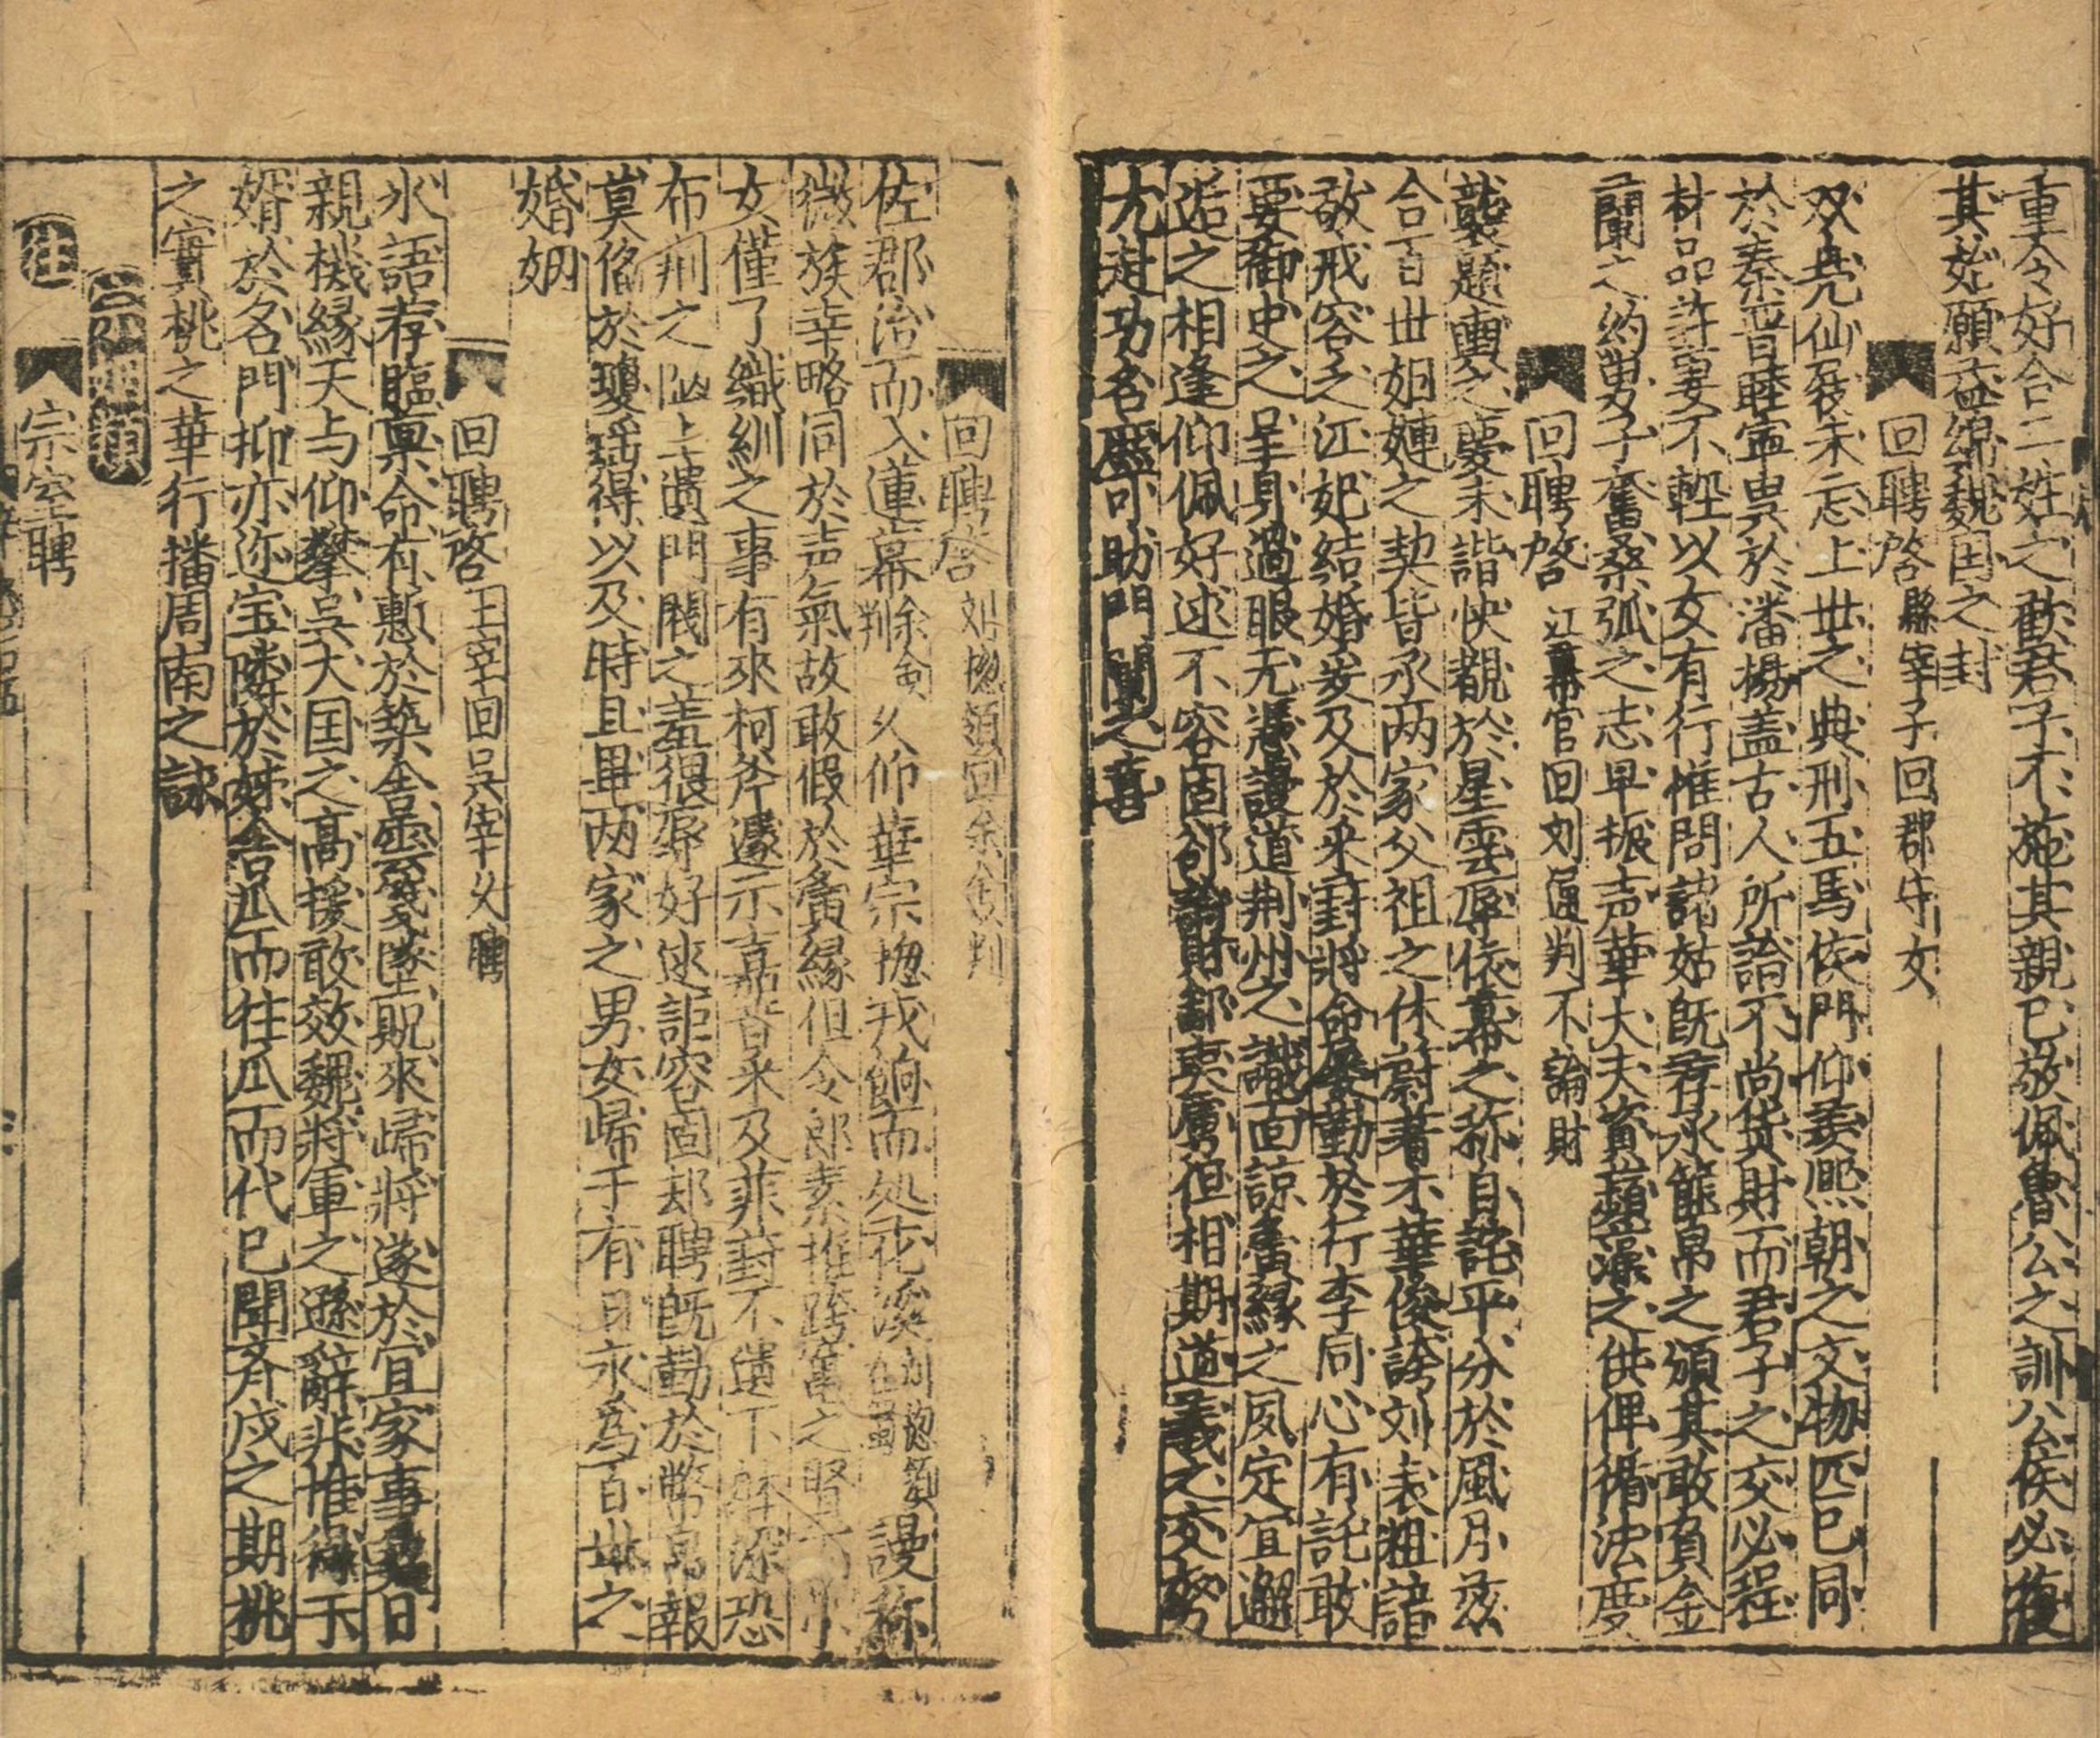 重令好合二姓之歡君子不施其親已敬佩魯公之訓公侯必復
其始願益綿魏国之封
回聘啓 縣宰子回郡守女
双凫仙裔未忘上世之典刑五馬侯門仰羡熈朝之文物匹已同
於秦晋睦寧異於潘楊盖古人所論不尚货財而君子之交必程
材品許妻不輕以女有行惟問諸姑既荐承篚帛之頒其敢負金
蘭之約男子奮桑弧之志早振声華大夫資蘋藻之供俾循法度
回聘啓 江幕官回刘倅判不論財
襲題輿之慶未諧快覩於星雲辱依幕之称自詫平分於風月兹
合百世姻婕之契皆承两家父祖之休蔚著不華俊誇刘表粗諳
敬戒容之江妃結婚爰及於采葑將命屡勤於行李同心有託敢
要御史之呈身過眼无憑謾道荆州之識面諒夤緣之夙定宜邂
逅之相逢仰佩好逑不容固郤論財鄙夷虜但相期道義之交努
力赴功名應可助門闌之喜
回聘啓 刘捴領回余僉判
佐郡治而入蓮幕余僉判久仰華宗捴戎餉而処花溪刘捴領謾称
微族幸略同於声氣故敢假於夤緣但令郎素推跨竃之賢而小
女僅了織紃之事有來柯斧遽示嘉音采及菲葑不遺下体深恐
布荆之陋上遺門閥之羞很辱好逑詎容固却聘既勤於幣帛報
莫俻於瓊瑶得以及時且畢两家之男女歸于有日永為百世之
婚姻
回聘啓 王宰回吳宰父聘
氷語荐臨禀命有慙於築舎壶箋遂墜貺來歸將遂於宜家事異日
親機緣天与仰攀吳大国之高援敢效魏將軍之遜辭非惟得于
婿於名門抑亦迩宝隣於姊舎瓜而往瓜而代已聞斉戍之期桃
之實桃之華行播周南之詠
往
宗室聘